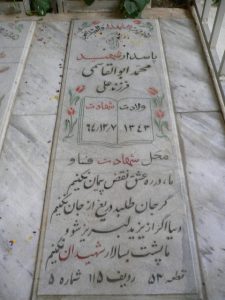 پاسدار شهید
محمد ابوالقاسمی
فرزند علی
ولادت شهادت
۱۳۴۳ ۶۴/۱۳/۰۷
محل شهادت فاو
ما در ره عشق نقض پیمان نکنیم
گر جان طلبد دریغ از جان نکنیم
دنیا اگر از یزید لبریز شود
ما پشت به سالار شهیدان نکنیم
قطعه ۵۳ ردیف ۱۱۵ شماره ۵